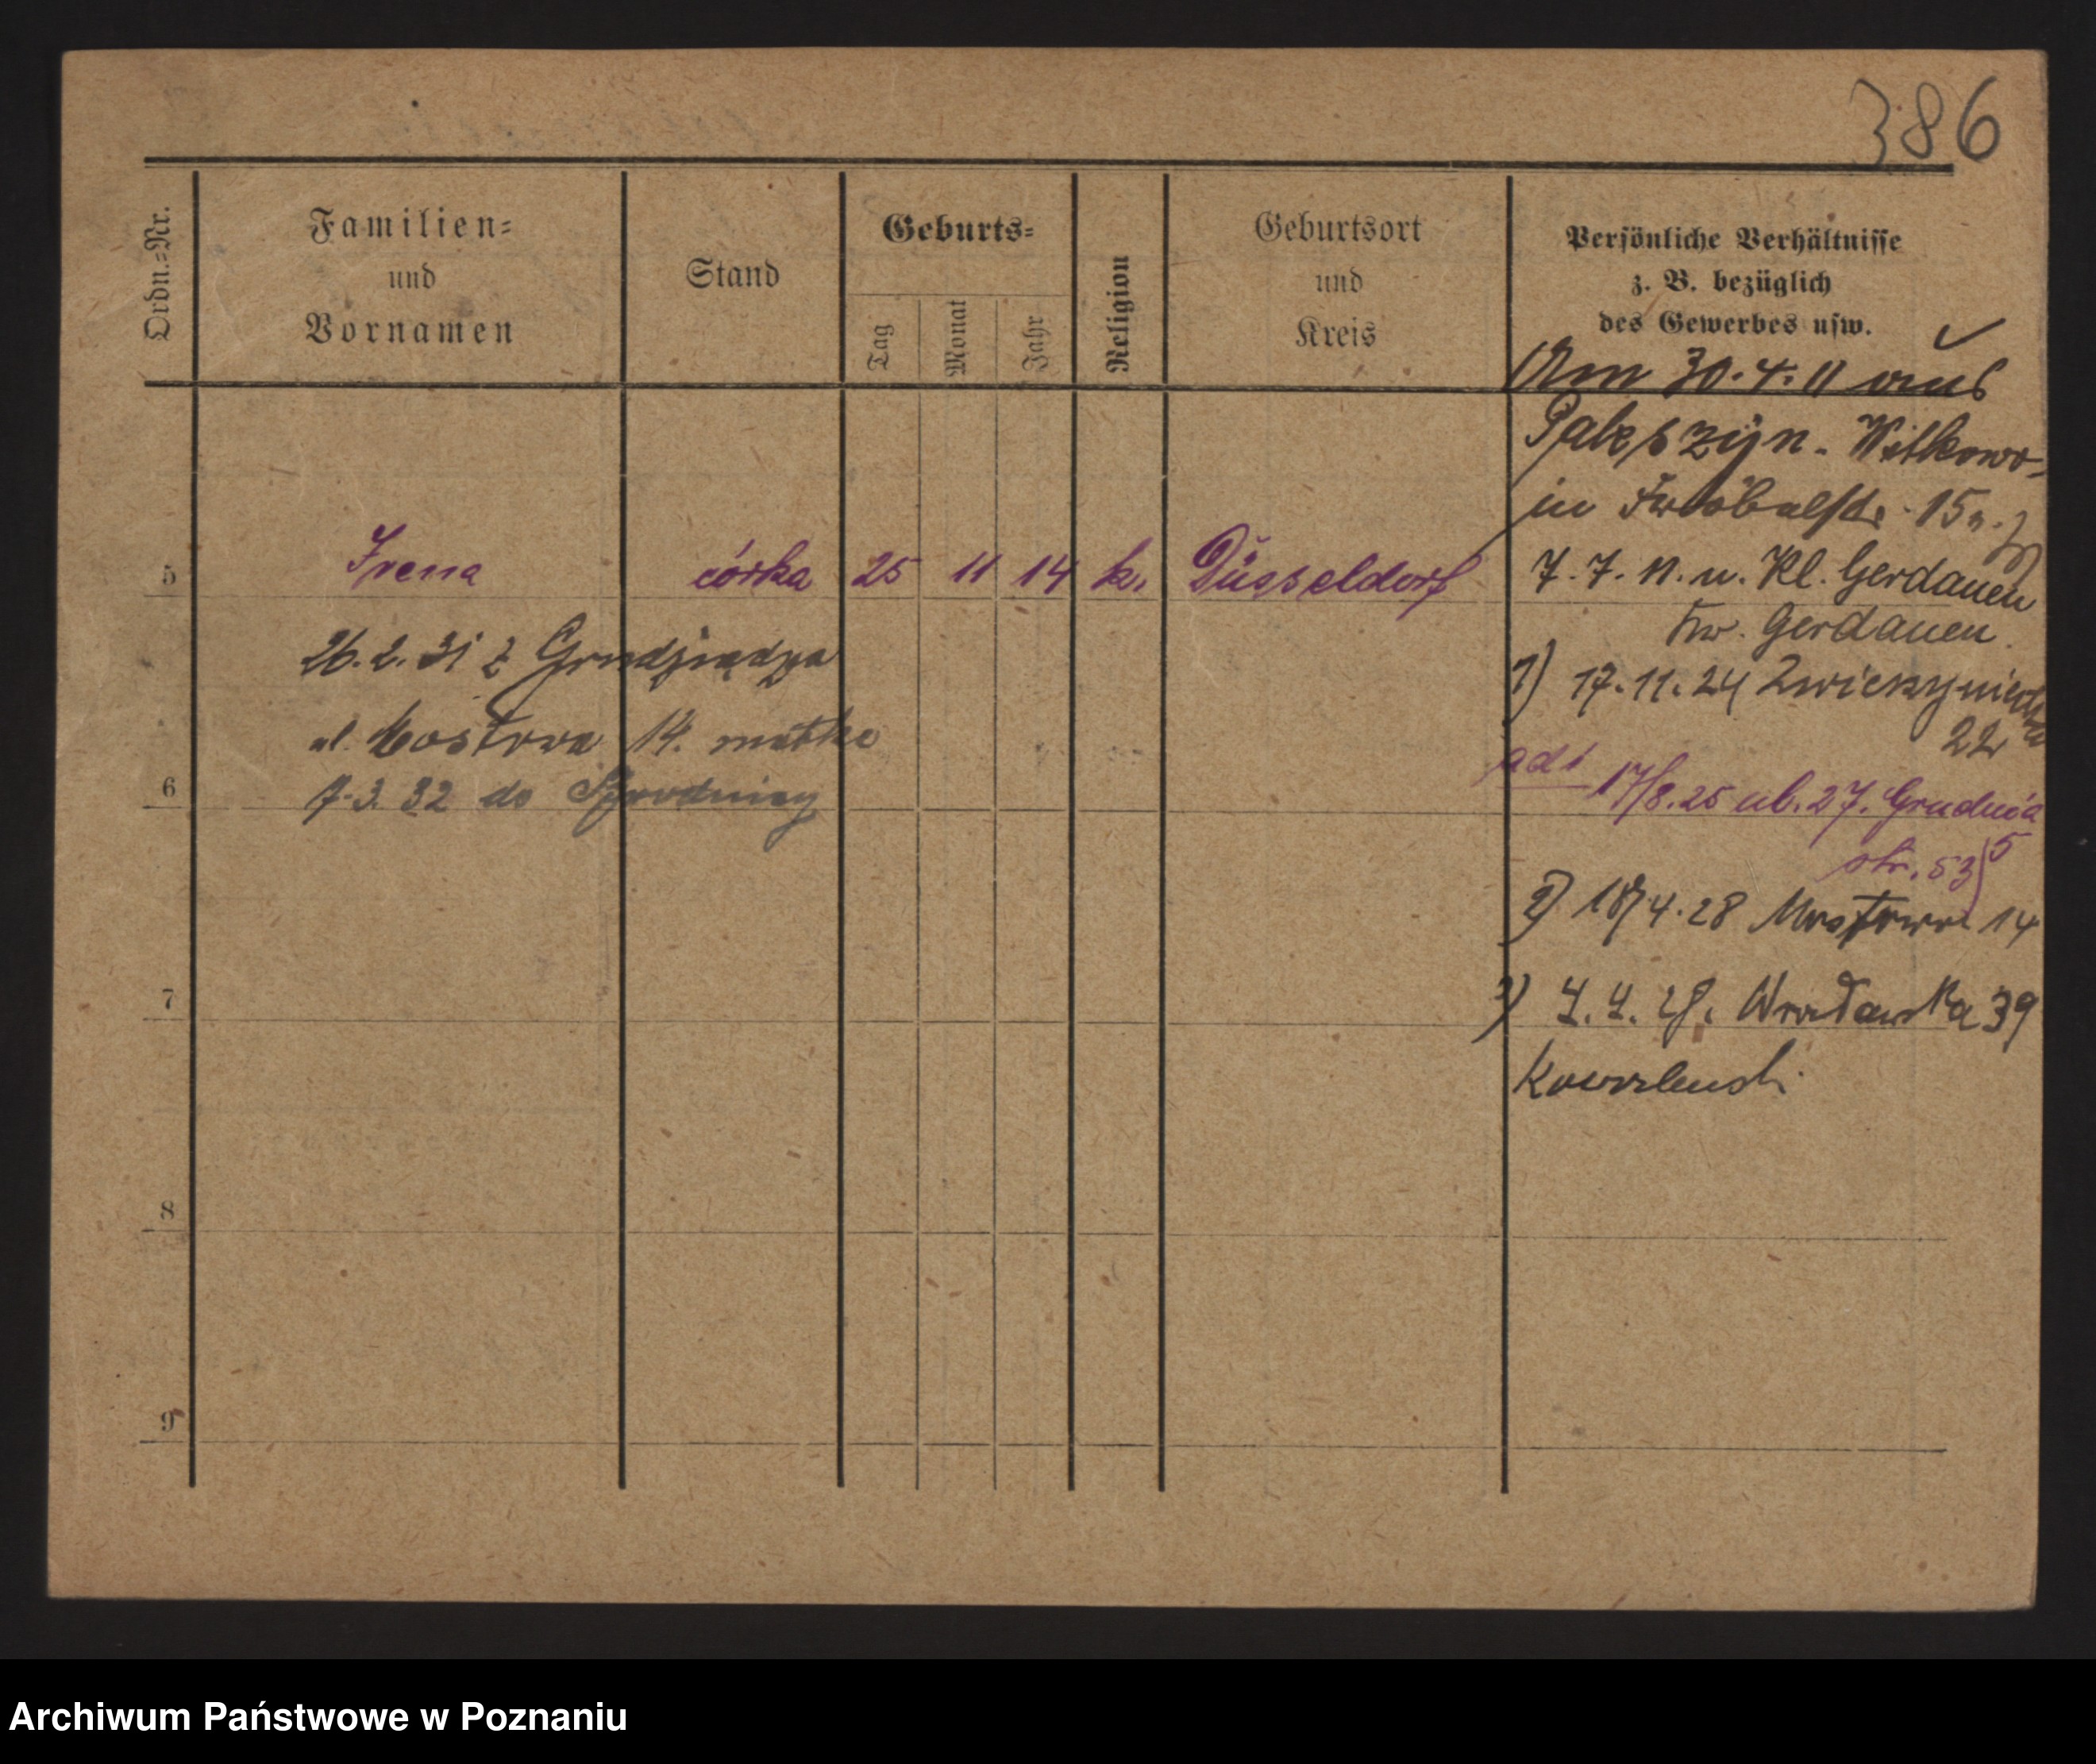 386
Ordn.-Nr.
Familien-
und
Vornamen
Stand
Geburts-
Tag
Monat
Jahr
Religion
Geburtsort
und
Kreis
Persönliche Verhältnisse
z. B. bezüglich
des Gewerbes usw.
Am 30.4.11 aus
Witkowo
in 15
5 Irena córka 25 11 14 k. Düsseldorf
7.7.11. n. Kl. Gerdauen
Krs. Gerdauen.
26.2.31 z Grudziądza
1) 17.11.24 Zwierzyniecka
22
ul. Mostowa 14. matka
ad 1 17/8.25 ub. 27. Grudnia
str. 53/5
6
7.3.32 do Brodnicy
2) 18/4.28 Mostowa 14
7
3) 4.4.29. 39
8
9
Archiwum Państwowe w Poznaniu